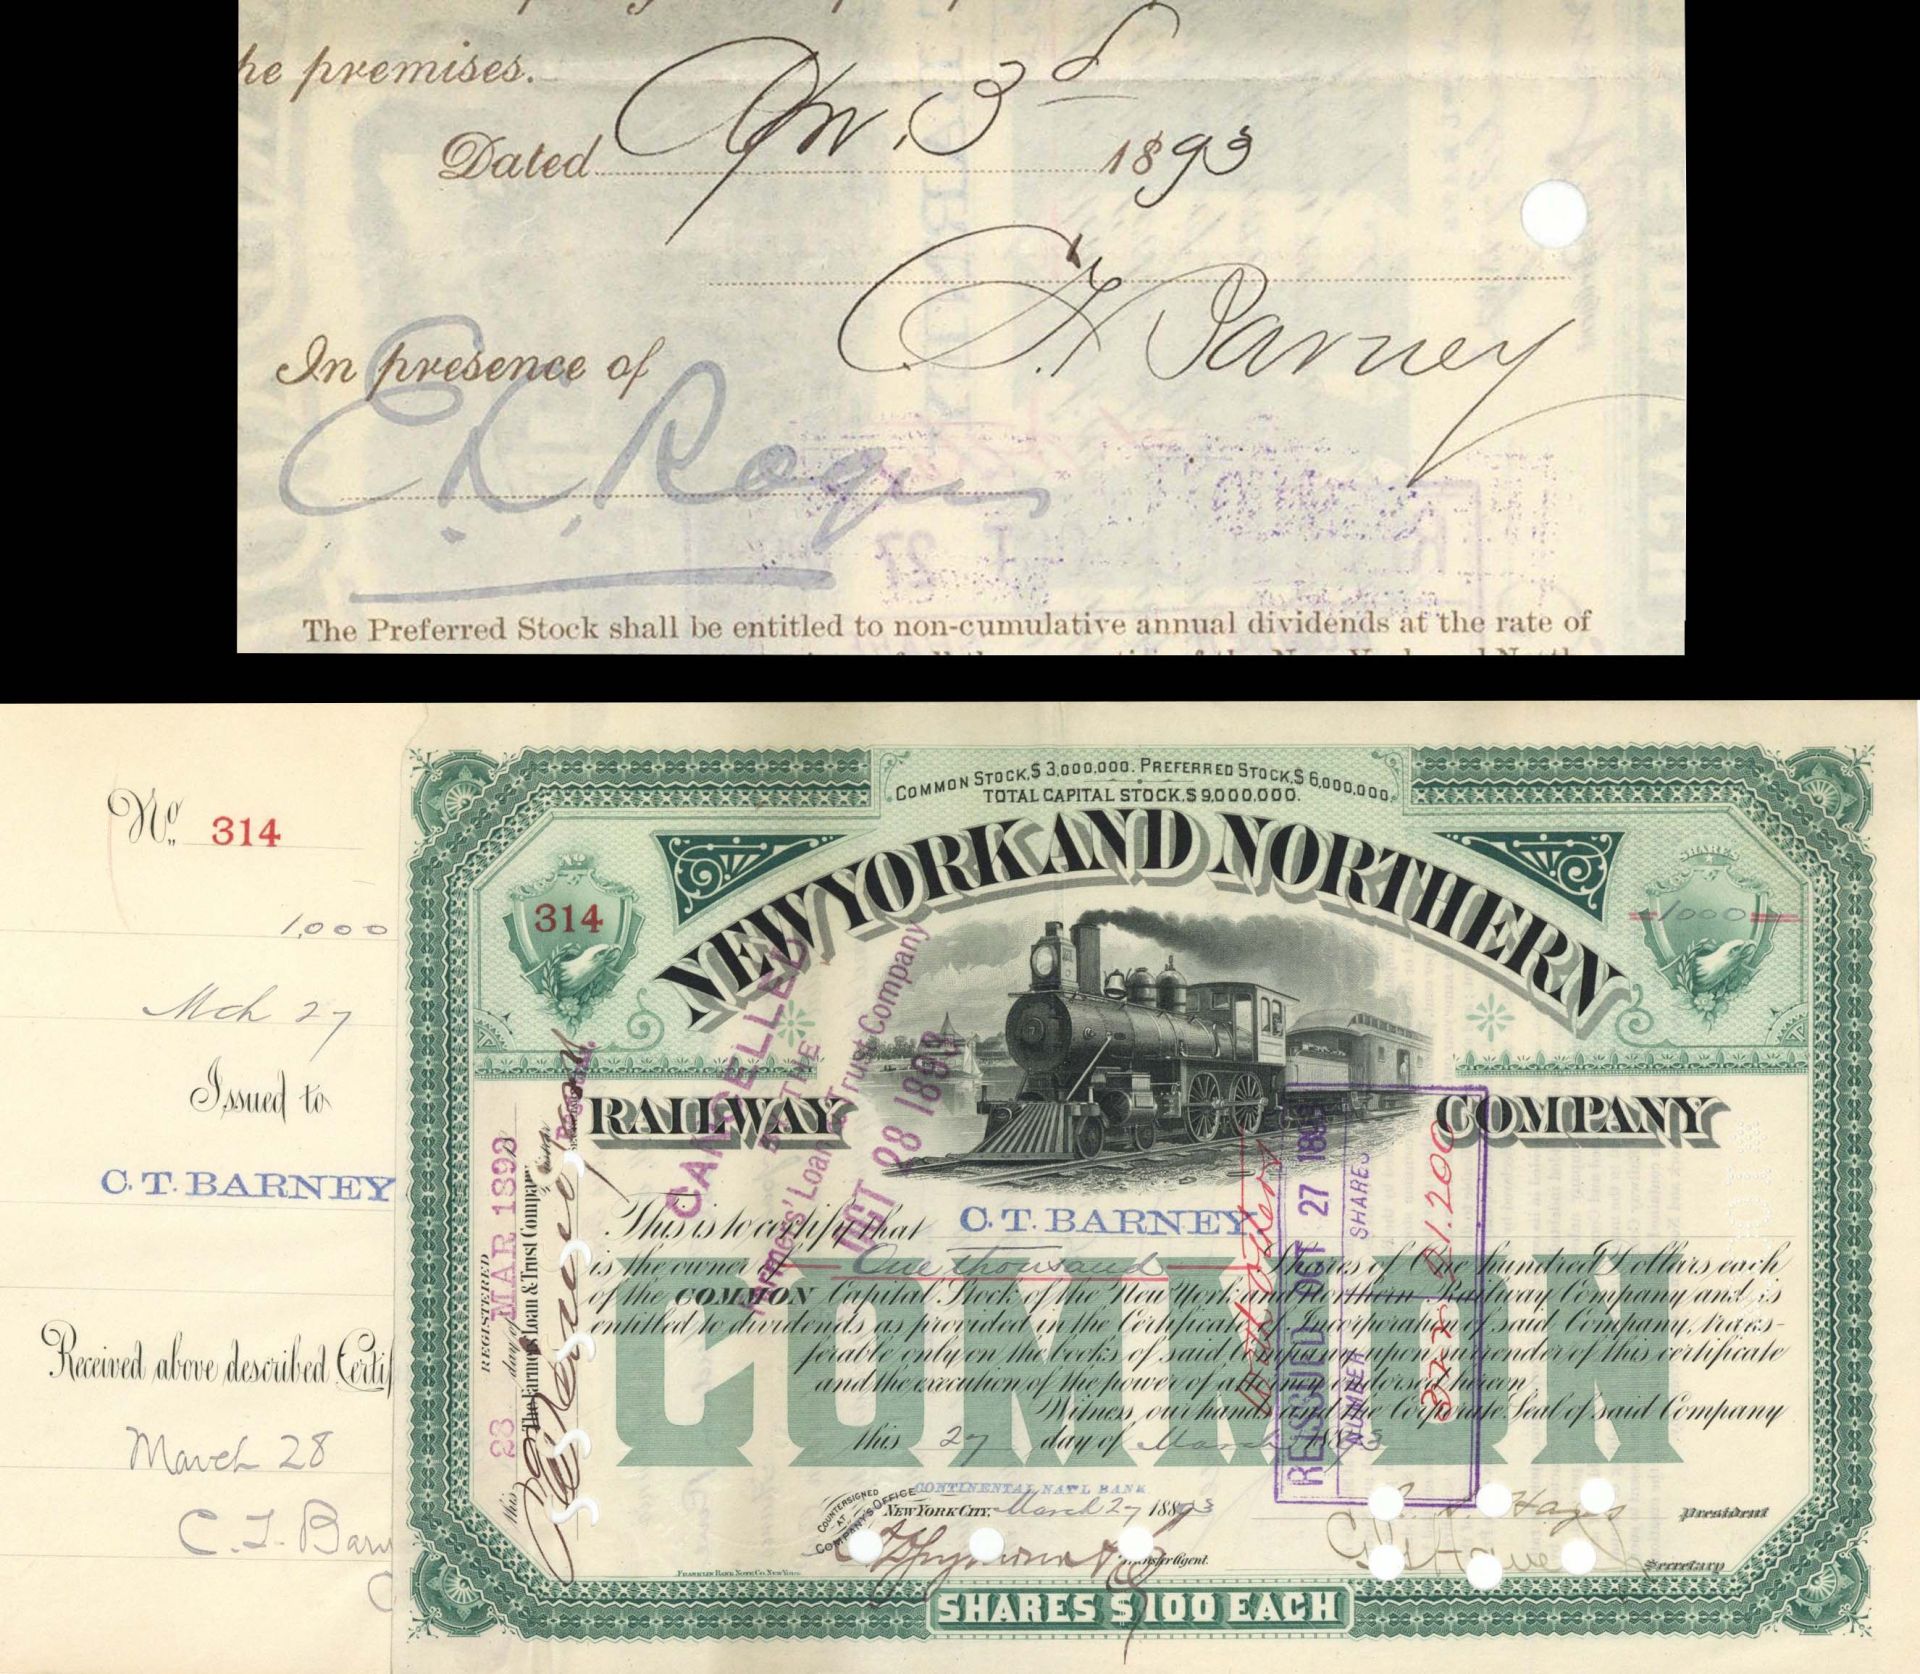 he premises.
Dated Apr. 3d 1893
C. T. Barney
In presence of
E. K. Rogers
The Preferred Stock shall be entitled to non-cumulative annual dividends at the rate of
No. 314
1,000
Mch 27
Issued to
C. T. BARNEY
Received above described Certif
March 28
C. T. Barn
COMMON STOCK, $3,000,000. PREFERRED STOCK, $6,000,000
TOTAL CAPITAL STOCK, $9,000,000.
NEW YORK AND NORTHERN
No
314
SHARES
1000
RAILWAY COMPANY
CANCELLED
BY THE
Farmers' Loan & Trust Company
OCT 28 1893
REGISTERED
this 28 day of MAR 1893
The Farmers Loan & Trust Company
Registrar.
This is to certify that C. T. BARNEY
is the owner of One thousand Shares of One hundred Dollars each
of the COMMON Capital Stock of the New York and Northern Railway Company and is
entitled to dividends as provided in the Certificate of Incorporation of said Company, trans-
ferable only on the books of said Company upon surrender of this certificate
and the execution of the power of attorney endorsed hereon
Witness, our hands and the Corporate Seal of said Company
this 27 day of March 1893
COMMON
REISSUED OCT 27 1893
NUMBER SHARES
21.200
with others
COUNTERSIGNED
AT
COMPANY'S OFFICE
CONTINENTAL NAT'L BANK
NEW YORK CITY, March 27 1893
Transfer Agent.
Hays President
Secretary
FRANKLIN BANK NOTE CO. NEW YORK
SHARES $100 EACH